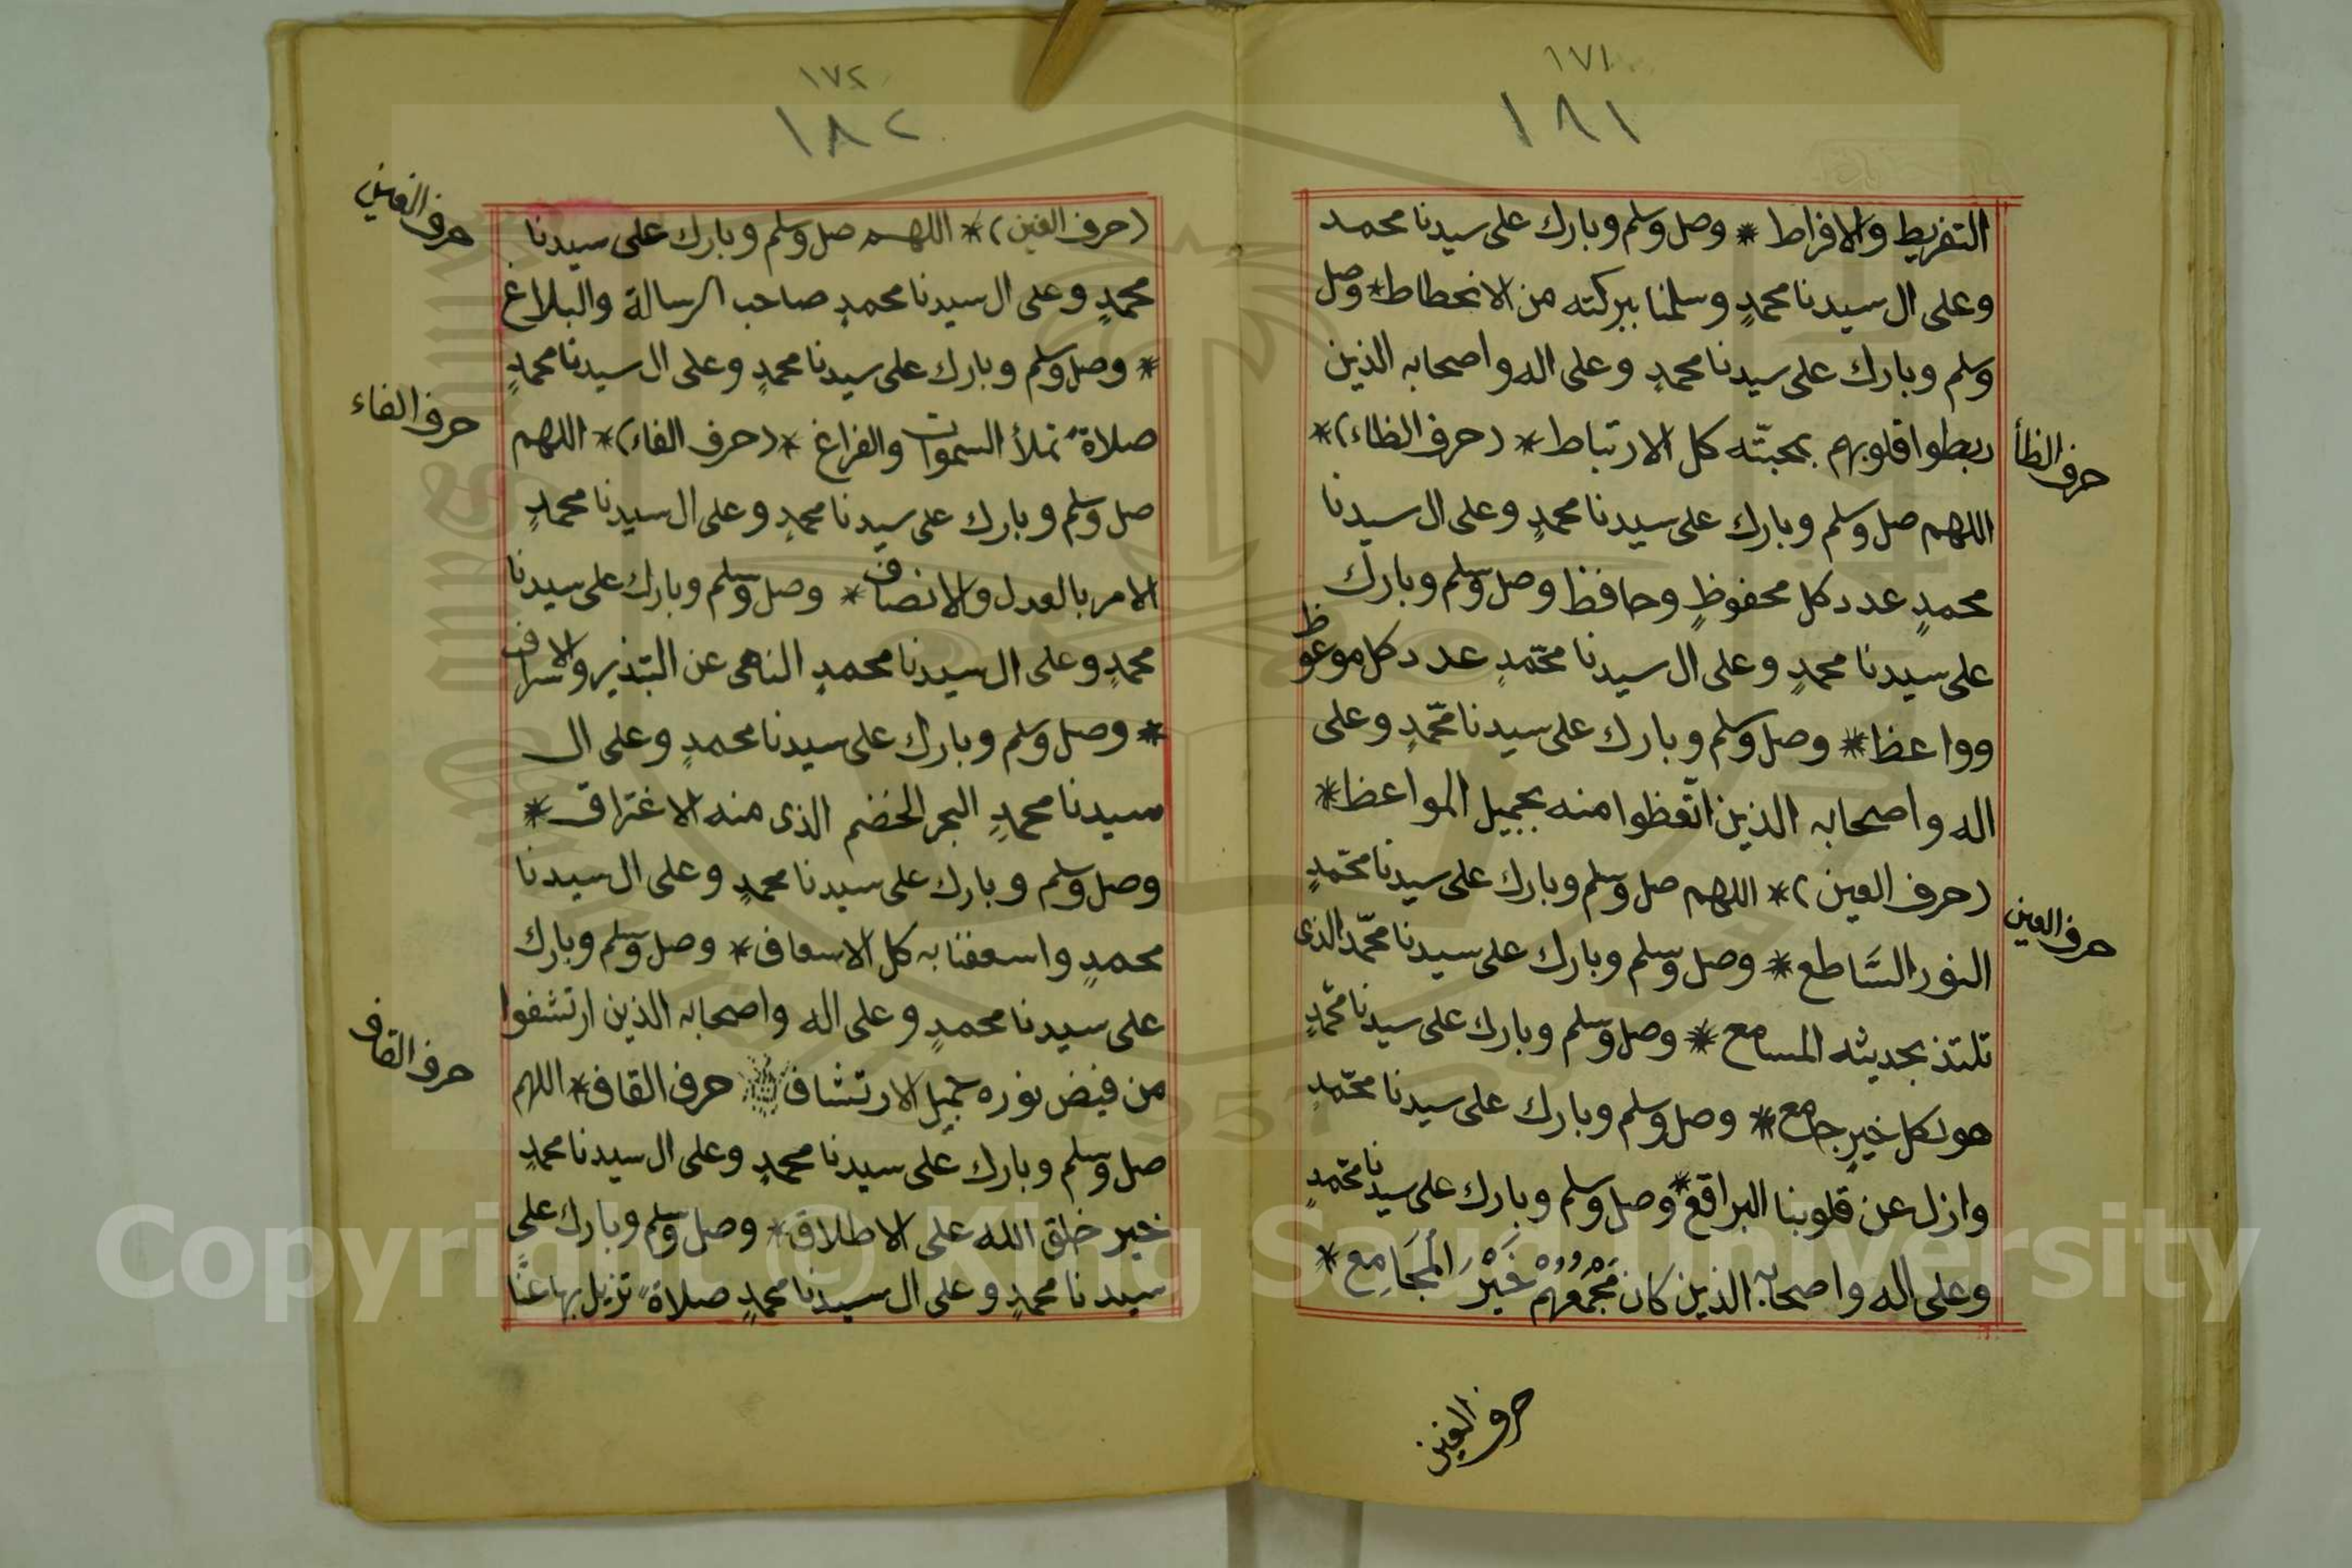 ١٧١
١٨١
التفريط والافراط * وصل وسلم وبارك على سيدنا محمد
وعلى ال سيدنا محمدٍ وسلمنا ببركته من الانحطاط * وصل
وسلم وبارك على سيدنا محمدٍ وعلى اله واصحابه الذين
ربطوا قلوبهم بمحبتّه كل الارتباط * (حرف الظاء) *
حرف الظأ
اللهم صل وسلم وبارك على سيدنا محمدٍ وعلى ال سيدنا
محمدٍ عدد كل محفوظٍ وحافظ وصل وسلم وبارك
على سيدنا محمدٍ وعلى ال سيدنا محمّدٍ عدد كل موعوظ
وواعظ * وصل وسلم وبارك على سيدنا محمّدٍ وعلى
اله واصحابه الذين اتّعظوا منه بجميل المواعظ *
(حرف العين) * اللهم صل وسلم وبارك على سيدنا محمّدٍ
حرف العين
النور السَّاطع * وصل وسلم وبارك على سيدنا محمّد الذى
تلتذ بحديثه المسامع * وصل وسلم وبارك على سيدنا محمّدٍ
هو لكل خيرٍ جامع * وصل وسلم وبارك على سيدنا محمّدٍ
وازل عن قلوبنا البراقع * وصل وسلم وبارك على سيدنا محمّدٍ
وعلى اله واصحابه الذين كان مَجْمَعُهُمْ خَيْرَ الْمَجَامِع *
حرف الغين
١٧٢
١٨٢
(حرف الغين) * اللهم صل وسلم وبارك على سيدنا
حرف الغين
محمدٍ وعلى ال سيدنا محمدٍ صاحب الرسالة والبلاغ
* وصل وسلم وبارك على سيدنا محمدٍ وعلى ال سيدنا محمدٍ
صلاةً تملأ السموات والفراغ * (حرف الفاء) * اللهم
حرف الفاء
صل وسلم وبارك على سيدنا محمدٍ وعلى ال سيدنا محمدٍ
الامر بالعدل والانصاف * وصل وسلم وبارك على سيدنا
محمدٍ وعلى ال سيدنا محمدٍ الناهى عن التبذير والاسراف
* وصل وسلم وبارك على سيدنا محمدٍ وعلى ال
سيدنا محمدٍ البحر الخضم الذى منه الاغتراف *
وصل وسلم وبارك على سيدنا محمدٍ وعلى ال سيدنا
محمدٍ واسعفنا به كل الاسعاف * وصل وسلم وبارك
على سيدنا محمدٍ وعلى اله واصحابه الذين ارتشفوا
من فيض نوره جميل الارتشاف حرف القاف * اللهم
حرف القاف
صل وسلم وبارك على سيدنا محمدٍ وعلى ال سيدنا محمدٍ
خير خلق الله على الاطلاق * وصل وسلم وبارك على
سيدنا محمدٍ وعلى ال سيدنا محمدٍ صلاةً تزيل بها عنَّا
Copyright © King Saud University
1957